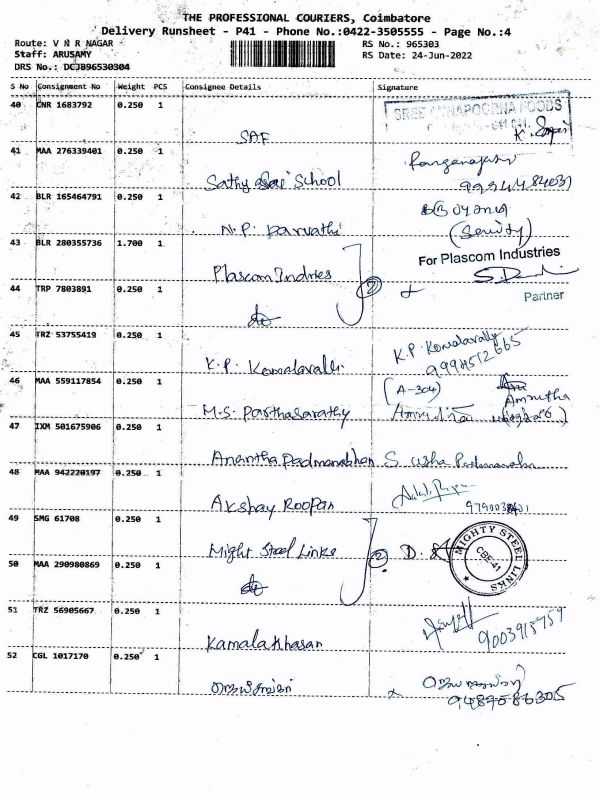 THE PROFESSIONAL COURIERS, Coimbatore
Delivery Runsheet - P41 - Phone No.:0422-3505555 - Page No.:4
Route: V N R NAGAR
RS No.: 965303
Staff: ARUSAMY
RS Date: 24-Jun-2022
DRS No.: DCJB96530304
S No Consignment No Weight PCS Consignee Details Signature
40 CNR 1683792 0.250 1
SREE ANNAPOORNA FOODS
SAF
41 MAA 276339401 0.250 1
Sathy School
42 BLR 165464791 0.250 1
N.P. Parvathi
(Security)
43 BLR 280355736 1.700 1
For Plascom Industries
Plascom Indries
Partner
44 TRP 7803891 0.250 1
do
45 TRZ 53755419 0.250 1
K.P. Komalavalli
K.P. Komalavally
46 MAA 559117854 0.250 1
(A-304)
Amrutha
M.S. Parthasarathy
47 IXM 501675906 0.250 1
Anantha Padmanabhan S. Usha Padmanabhan
48 MAA 942220197 0.250 1
Akshay Roopan
49 SMG 61708 0.250 1
Might Steel Links
MIGHTY STEEL LINKS
CBE-41
50 MAA 290980869 0.250 1
do
51 TRZ 56905667 0.250 1
Kamalakhasan
9003915759
52 CGL 1017170 0.250 1
9489586305